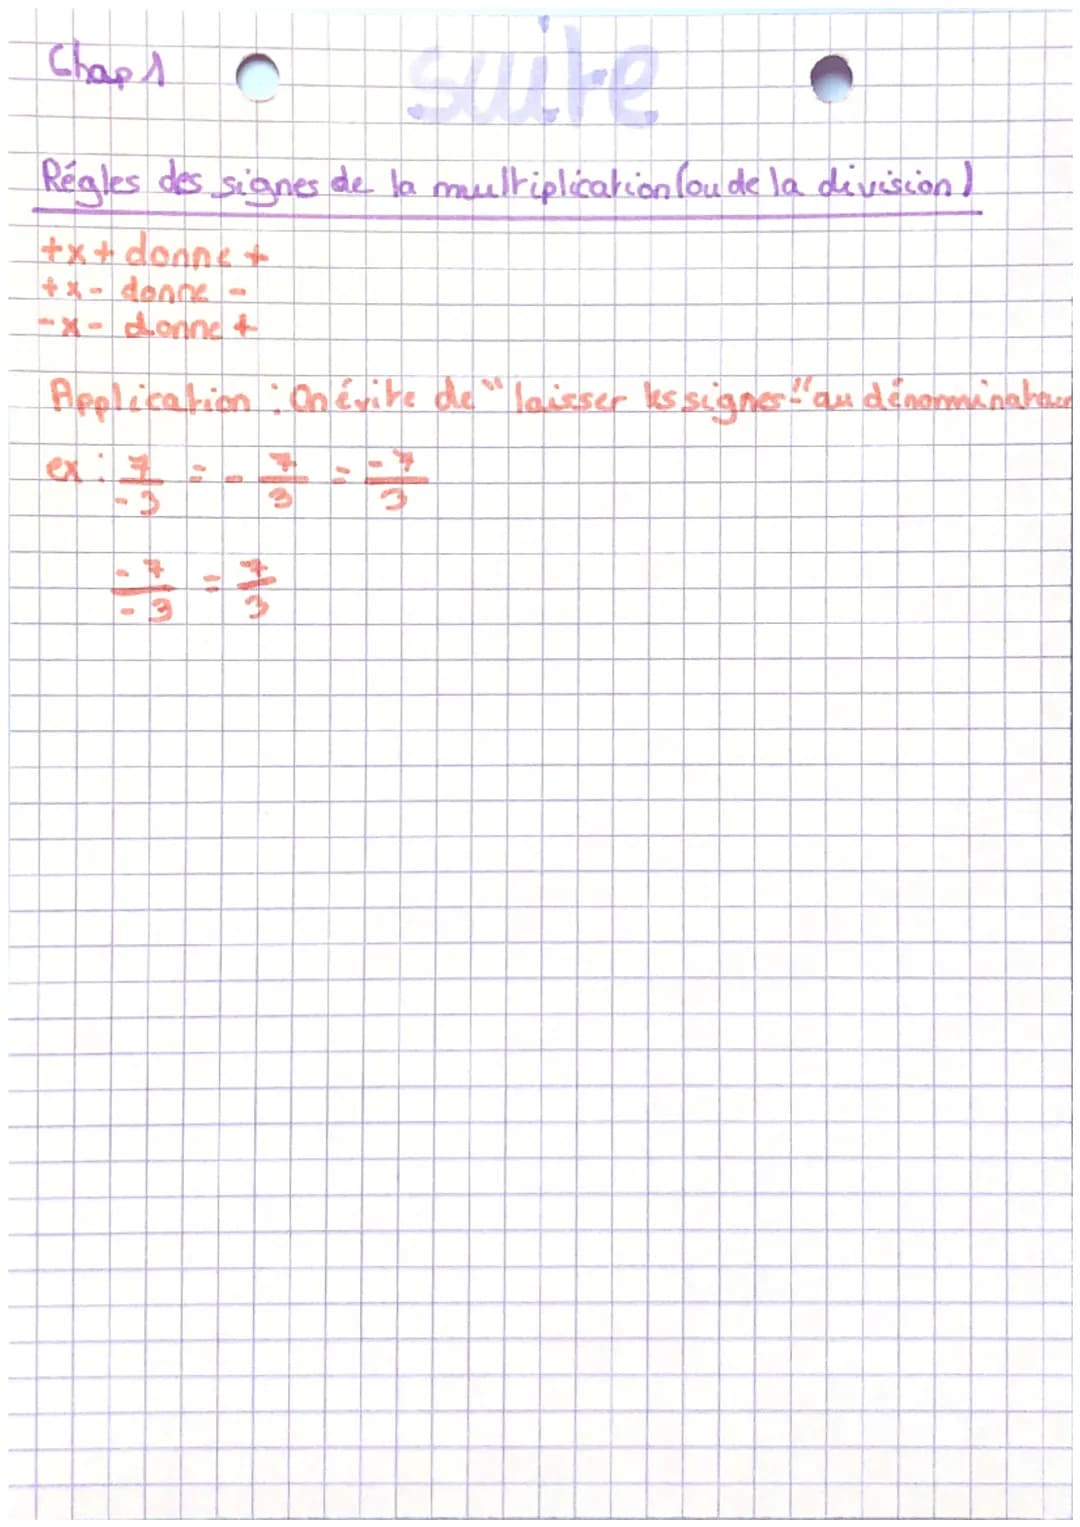 Chap 1
suite
Régles des signes de la multiplication (ou de la division)
+x+ donne +
+x- donne -
-x- donne +
Application : On évite de "laisser les signes -" au dénominateur
ex : 7/-3 = - 7/3 = -7/3
-7/-3 = 7/3